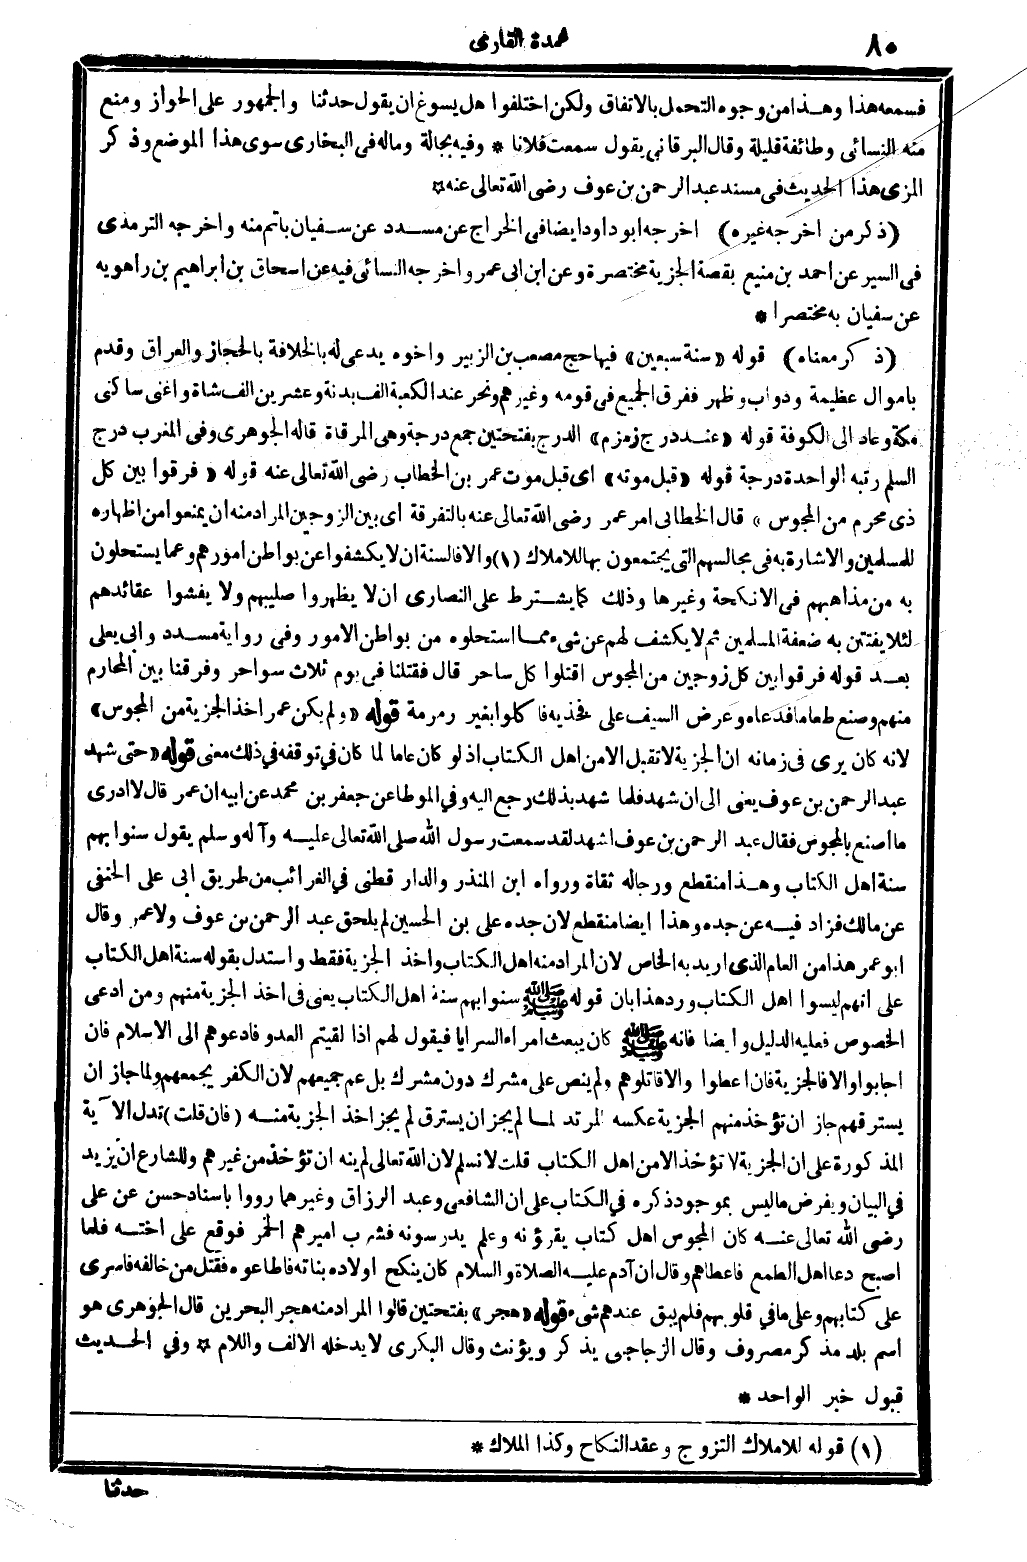 ٨٠
عمدة القارى
فسمعه هذا وهذا من وجوه التحمل بالاتفاق ولكن اختلفوا هل يسوغ ان يقول حدثنا والجمهور على الجواز ومنع
منه النسائى وطائفة قليلة وقال البرقانى يقول سمعت فلانا * وفيه بجالة وماله فى البخارى سوى هذا الموضع وذكر
المزى هذا الحديث فى مسند عبد الرحمن بن عوف رضى الله تعالى عنه *
(ذكر من اخرجه غيره) اخرجه ابو داود ايضا فى الخراج عن مسدد عن سفيان باتم منه واخرجه الترمذى
فى السير عن احمد بن منيع بقصة الجزية مختصرة وعن ابن ابى عمر واخرجه النسائى فيه عن اسحاق بن ابراهيم بن راهويه
عن سفيان به مختصرا *
(ذكر معناه) قوله «سنة سبعين» فيها حج مصعب بن الزبير واخوه يدعى له بالخلافة بالحجاز والعراق وقدم
باموال عظيمة ودواب وظهر ففرق الجميع فى قومه وغيرهم ونحر عند الكعبة الف بدنة وعشرين الف شاة واغنى ساكنى
مكة وعاد الى الكوفة قوله «عند درج زمزم» الدرج بفتحتين جمع درجة وهى المرقاة قاله الجوهرى وفى المغرب درج
السلم رتبه الواحدة درجة قوله «قبل موته» اى قبل موت عمر بن الخطاب رضى الله تعالى عنه قوله «فرقوا بين كل
ذى محرم من المجوس» قال الخطابى امر عمر رضى الله تعالى عنه بالتفرقة اى بين الزوجين المراد منه ان يمنعوا من اظهاره
للمسلمين والاشارة به فى مجالسهم التى يجتمعون بها للاملاك (١) والا فالسنة ان لا يكشفوا عن بواطن امورهم وعما يستحلون
به من مذاهبهم فى الانكحة وغيرها وذلك كما يشترط على النصارى ان لا يظهروا صليبهم ولا يفشوا عقائدهم
لئلا يفتتن به ضعفة المسلمين ثم لا يكشف لهم عن شىء مما استحلوه من بواطن الامور وفى رواية مسدد وابى يعلى
بعد قوله فرقوا بين كل زوجين من المجوس اقتلوا كل ساحر قال فقتلنا فى يوم ثلاث سواحر وفرقنا بين المحارم
منهم وصنع طعاما فدعاه وعرض السيف على فخذيه فاكلوا بغير رمرمة قوله «ولم يكن عمر اخذ الجزية من المجوس»
لانه كان يرى فى زمانه ان الجزية لا تقبل الا من اهل الكتاب اذ لو كان عاما لما كان فى توقفه فى ذلك معنى قوله «حتى شهد
عبد الرحمن بن عوف يعنى الى ان شهد فلما شهد بذلك رجع اليه وفى الموطا عن جعفر بن محمد عن ابيه ان عمر قال لا ادرى
ما اصنع بالمجوس فقال عبد الرحمن بن عوف اشهد لقد سمعت رسول الله صلى الله تعالى عليه وآله وسلم يقول سنوا بهم
سنة اهل الكتاب وهذا منقطع ورجاله ثقاة ورواه ابن المنذر والدار قطنى فى الغرائب من طريق ابى على الحنفى
عن مالك فزاد فيه عن جده وهذا ايضا منقطع لان جده على بن الحسين لم يلحق عبد الرحمن بن عوف ولا عمر وقال
ابو عمر هذا من العام الذى اريد به الخاص لان المراد منه اهل الكتاب واخذ الجزية فقط واستدل بقوله سنة اهل الكتاب
على انهم ليسوا اهل الكتاب ورد هذا بان قوله ﷺ سنوا بهم سنة اهل الكتاب يعنى فى اخذ الجزية منهم ومن ادعى
الخصوص فعليه الدليل وأيضا فانه ﷺ كان يبعث امراء السرايا فيقول لهم اذا لقيتم العدو فادعوهم الى الاسلام فان
اجابوا والا فالجزية فان اعطوا والا قاتلوهم ولم ينص على مشرك دون مشرك بل عم جميعهم لان الكفر يجمعهم ولما جاز ان
يسترقهم جاز ان تؤخذ منهم الجزية عكسه المرتد لما لم يجز ان يسترق لم يجز اخذ الجزية منه (فان قلت) تدل الآية
المذكورة على ان الجزية لا تؤخذ الا من اهل الكتاب قلت لا نسلم لان الله تعالى لم ينه ان تؤخذ من غيرهم وللشارع ان يزيد
فى البيان ويفرض ما ليس بموجود ذكره فى الكتاب على ان الشافعى وعبد الرزاق وغيرهما رووا باسناد حسن عن على
رضى الله تعالى عنه كان المجوس اهل كتاب يقرؤنه وعلم يدرسونه فشرب اميرهم الخمر فوقع على اخته فلما
اصبح دعا اهل الطمع فاعطاهم وقال ان آدم عليه الصلاة والسلام كان ينكح اولاده بناته فاطاعوه فقتل من خالفه فاسرى
على كتابهم وعلى ما فى قلوبهم فلم يبق عندهم شىء قوله «هجر» بفتحتين قالوا المراد منه هجر البحرين قال الجوهرى هو
اسم بلد مذكر مصروف وقال الزجاجى يذكر ويؤنث وقال البكرى لا يدخله الالف واللام * وفى الحديث
قبول خبر الواحد *
(١) قوله للاملاك التزوج وعقد النكاح وكذا الملاك *
حدثنا